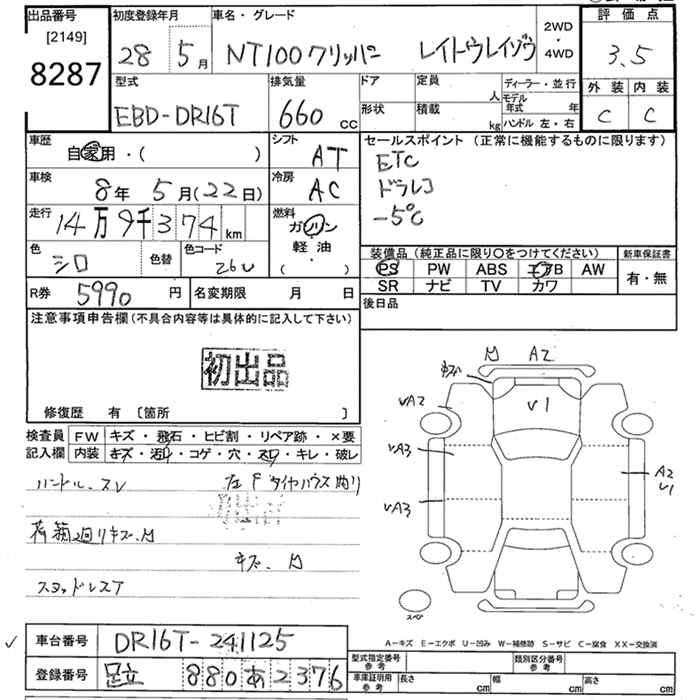 出品番号 初度登録年月 車名・グレード 2WD・4WD 評価点
[2149]
8287 28 5月 NT100クリッパー レイトウレイゾウ 3.5
型式 排気量 ドア 定員 人 ディーラー・並行 外装 内装
EBD-DR16T 660 CC 形状 積載 kg モデル年式 年 ハンドル 左・右 C C
車歴 自家用・( ) シフト AT セールスポイント (正常に機能するものに限ります)
ETC
車検 8年 5月(22日) 冷房 AC ドラレコ
走行 14万9千374km 燃料 ガソリン -5℃
軽油・
( )
色 シロ 色替 色コード 26U
装備品(純正品に限り○をつけてください) 新車保証書
PS PW ABS エアB AW 有・無
SR ナビ TV カワ
R券 5990円 名変期限 月 日 後日品
注意事項申告欄(不具合内容等は具体的に記入して下さい)
初出品
修復歴 有 [箇所 ]
検査員 FW キズ・飛石・ヒビ割・リペア跡・×要
記入欄 内装 キズ・汚れ・コゲ・穴・スリ・キレ・破レ
M A2
キズ
V1
VA2
VA3
A2
V1
VA3
ハンドル、スレ 左Fタイヤハウス内サビ
荷箱廻りキズ、M
キズ、M
スタッドレスT
スペア
A-キズ E-エクボ U-凹み W-補修跡 S-サビ C-腐食 XX-交換済
車台番号 DR16T-241125
登録番号 足立 880 あ 2376
型式指定番号 参考 類別区分番号 参考
車庫証明用 参考 長さ cm 幅 cm 高さ cm